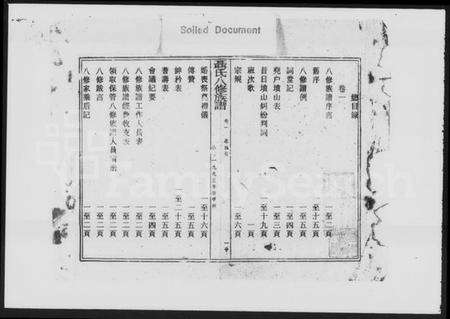 Soiled Document
總目錄
卷一
八修族譜序言 一至二頁
舊序 一至十五頁
八修譜例 一至五頁
詞堂記 一至四頁
堯戶墳山表 一至三頁
昔日墳山糾紛判詞 一至十九頁
班次歌 一頁
宗規 一至六頁
氏八修族譜
卷一
婚喪祭 禮儀 一至十六頁
傳贊 一至五頁
齡表 一至二十五頁
耆壽表 一至五頁
會議紀要 一至四頁
八修族譜工作人員表 一至五頁
八修族譜經費收支表 一至二頁
領取保管八修族譜人員
八修數言 一至二頁
八修家乘后記 一至二頁
FamilySearch